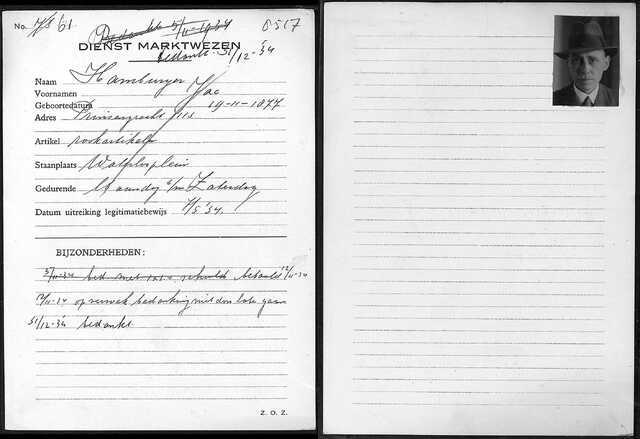 No. 7/5 61 Bedankt 5/11-1934 8517
DIENST MARKTWEZEN
bedankt 31/12-'34
Naam Hamburger
Voornamen Jac
Geboortedatum 19-11-1877
Adres Prinsengracht
Artikel rookartikelen
Staanplaats Waterlooplein
Gedurende Maandag t/m Zaterdag
Datum uitreiking legitimatiebewijs 7/5 '34.
BIJZONDERHEDEN:
5/11-34 bed. met schuld betaald 12/11-34
12/11-34 op verzoek bedanking niet door laten gaan
31/12-'34 bedankt
Z. O. Z.